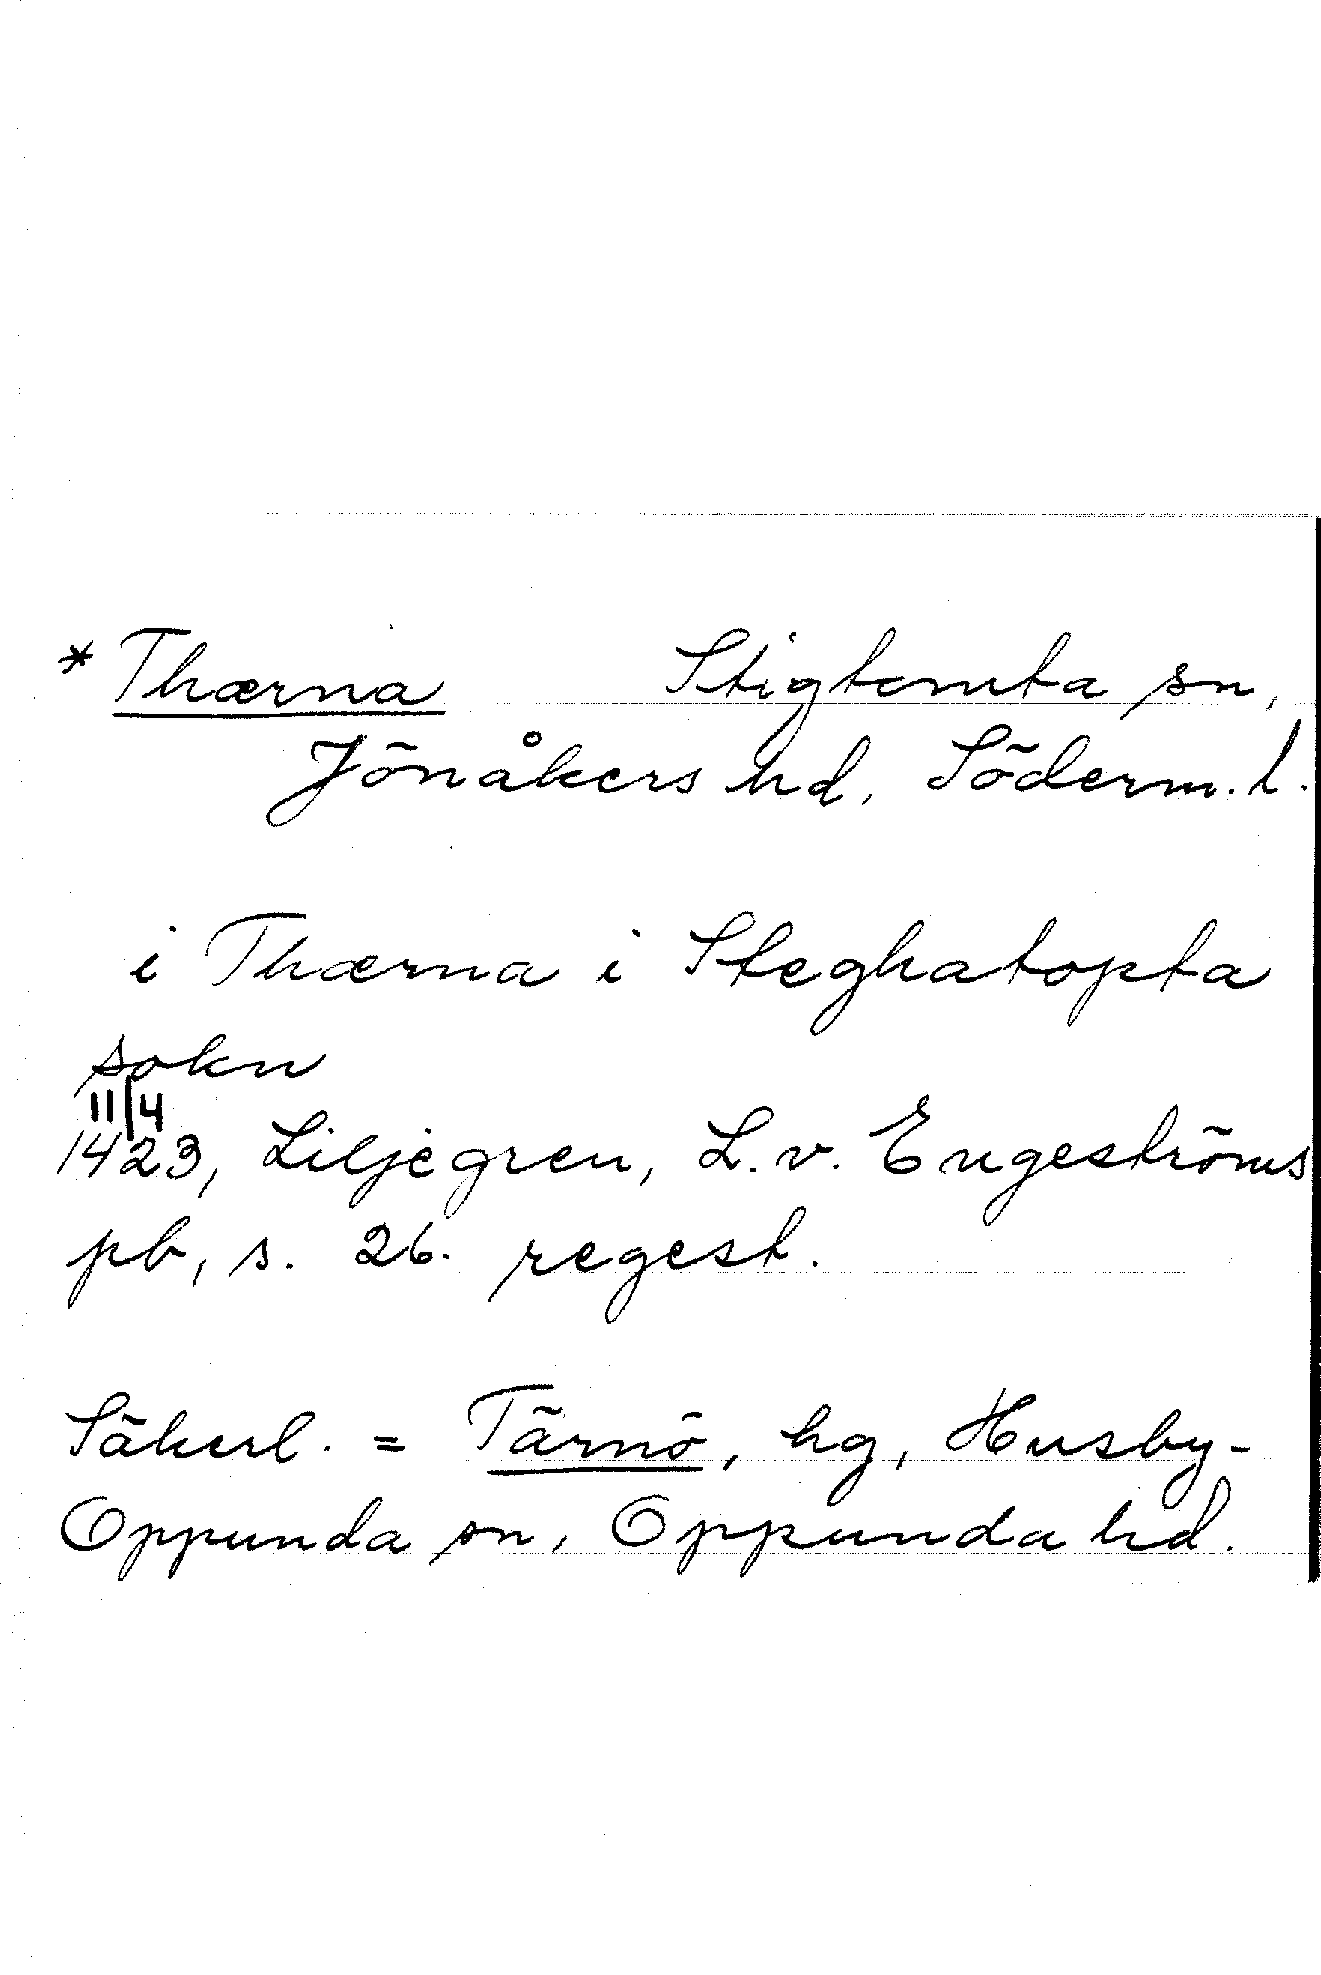 * Thærna Stigtomta sn,
Jönåkers hd, Söderm. l.
i Thærna i Steghatopta
sokn
11/4
1423, Liljegren, L. v. Engeströms
pb, s. 26. regest.
Säkerl. = Tärnö, hg, Husby-
Oppunda sn, Oppunda hd.